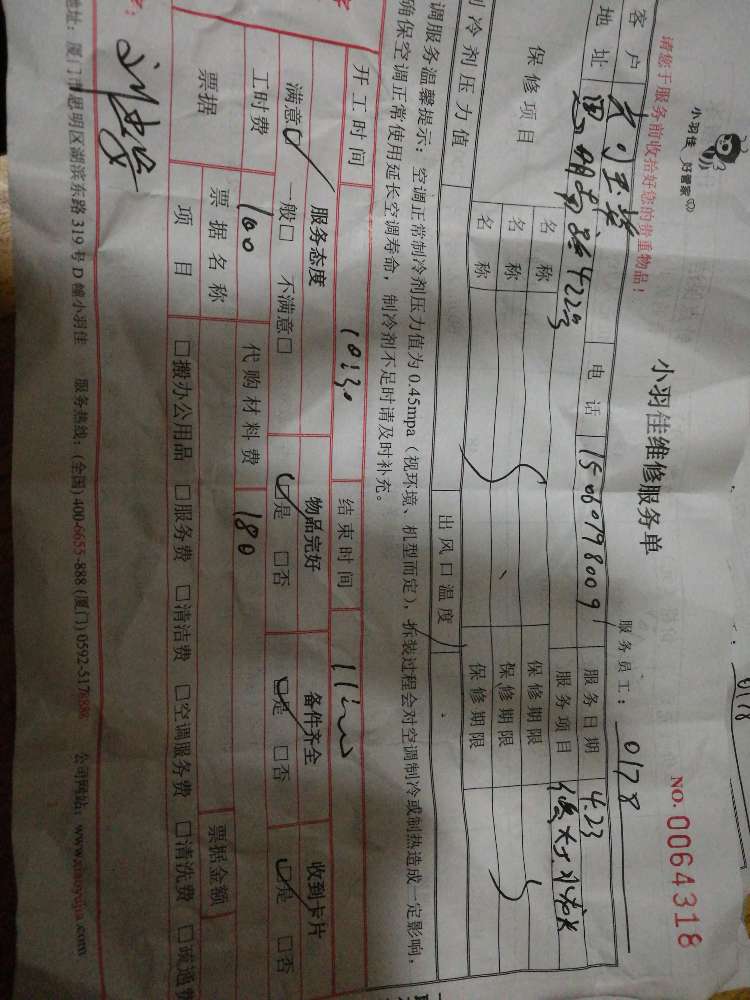 小羽佳 好管家
小羽佳维修服务单
NO. 0064318
0178
请您于服务前收拾好您的贵重物品！
服务员工： 0178
客户 电话 15060798009 服务日期 4.23
地址 思明南路422号 服务项目
保修项目 名称 保修期限
名称 保修期限
名称 保修期限
制冷剂压力值 出风口温度
调服务温馨提示：空调正常制冷剂压力值为0.45mpa（视环境、机型而定），拆装过程会对空调制冷或制热造成一定影响，
确保空调正常使用延长空调寿命，制冷剂不足时请及时补充。
开工时间 10:30 结束时间 11:00
服务态度 物品完好 备件齐全 收到卡片
满意☑ 一般□ 不满意□ ☑是 □否 ☑是 □否 ☑是 □否
工时费 100 代购材料费 180
票据 票据名称 票据金额
项目 □搬办公用品 □服务费 □清洁费 □空调服务费 □清洗费 □疏通费
地址：厦门市思明区湖滨东路319号D幢小羽佳 服务热线：(全国)400-6655-888 (厦门)0592-5176888 公司网站：www.xiaoyujia.com